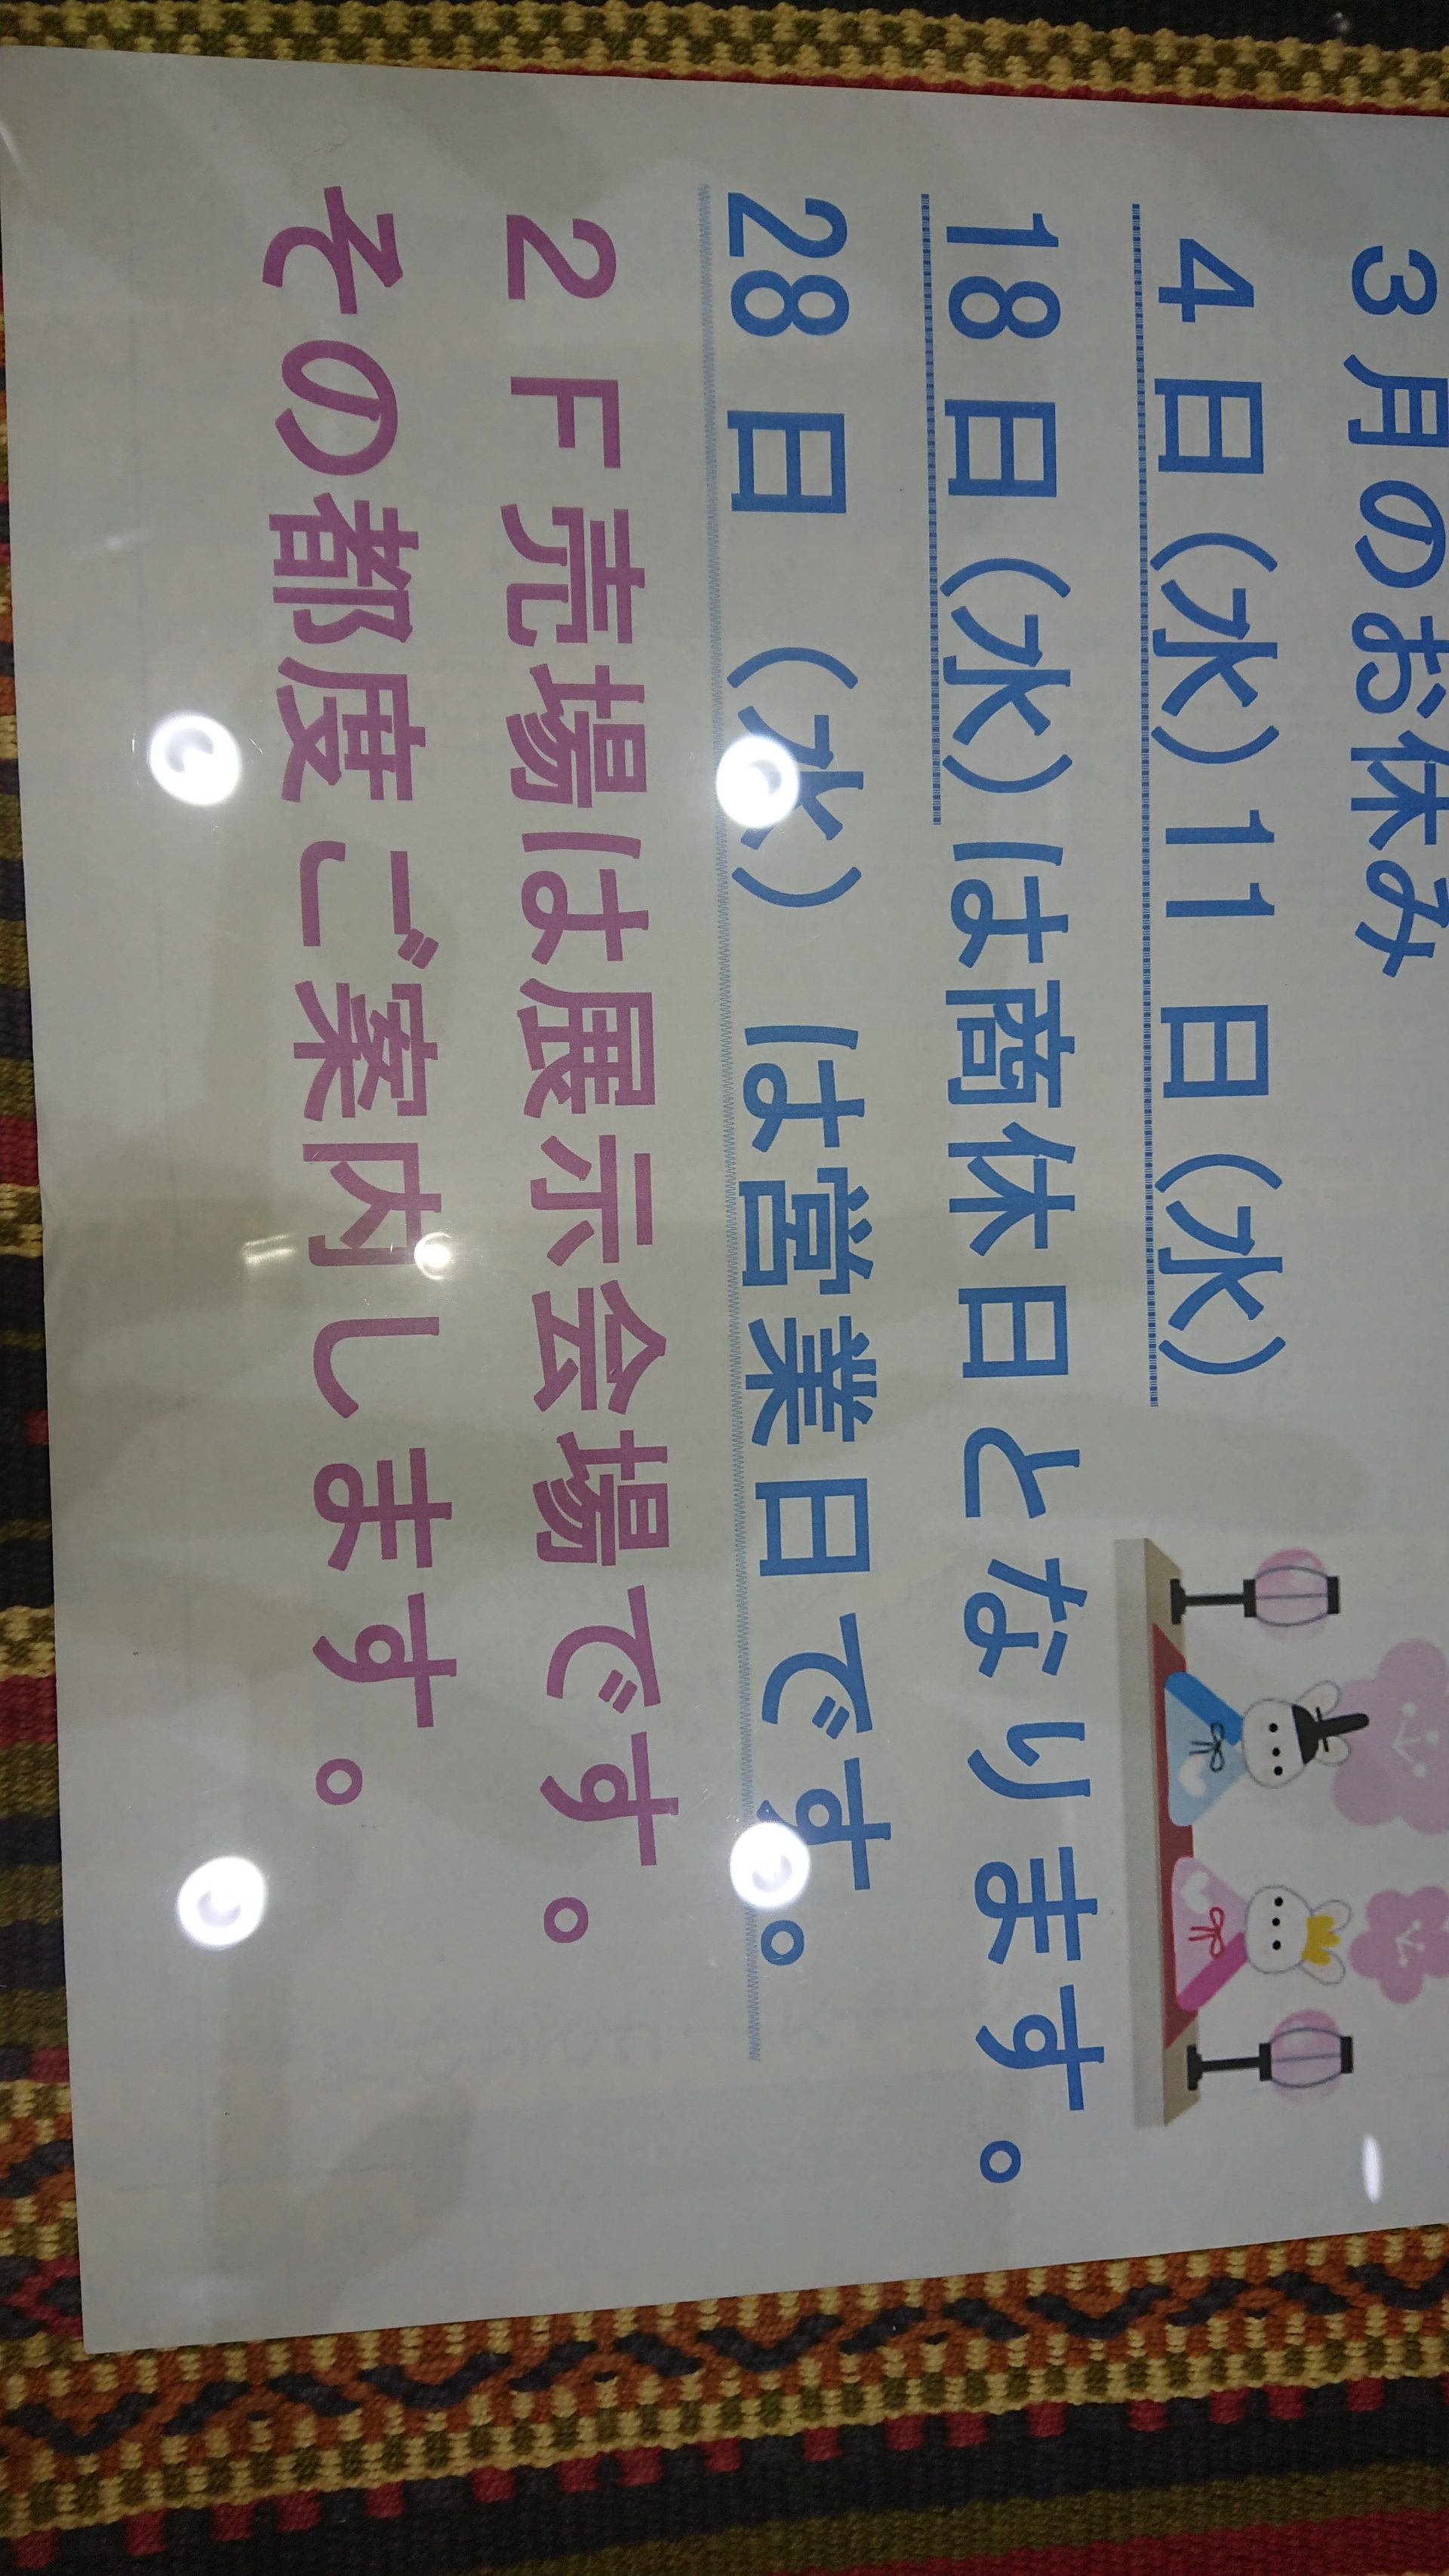 3月のお休み
4日(水)11日(水)
18日(水)は商休日となります。
28日(水)は営業日です。
2F売場は展示会場です。
その都度ご案内します。